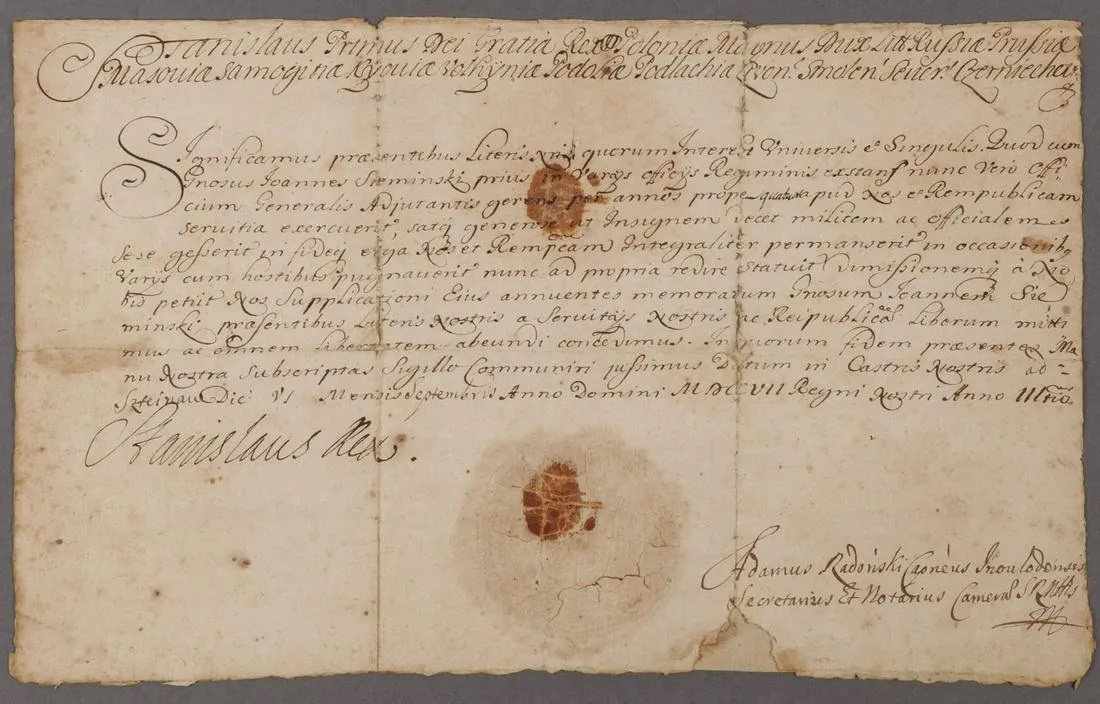 Stanislaus Primus Dei Gratia Rex Poloniæ Magnus Dux Litt Russiæ Prussiæ
Masoviæ Samogitiæ Kyoviæ Volhyniæ Podoliæ Podlachiæ Smolen: Sever: Czerniechov
Significamus præsentibus Literis Nris quorum Interest Universis et Singulis. Quod cum
Gnosus Joannes Sieminski prius in Varys officys Regiminis exstans nunc Vero Offi
cium Generalis Adjutantis gerens per annos prope quatuor apud Nos et Rempublicam
servitia exercuerit, satq generose ut Insignem decet militem ac officialem
sese gesserit in fideq erga Nos et Rempcam Integraliter permanserit in occasionibq
Varys cum hostibus pugnaverit nunc ad propria redire statuit dimissionemq à No
bis petiit Nos Supplicationi Eius annuentes memoratum Gnosum Joannem Sie
minski præsentibus Literis Nostris a Servitys Nostris ac Reipublicæ liberum mitti
mus ac omnem libertatem abeundi concedimus. In quorum fidem præsentes Ma
nu Nostra Subscriptas Sigillo Communiri jussimus Datum in Castris Nostris ad
Szteinau Die VI Mensis Septembris Anno Domini MDCCVII Regni Nostri Anno III tio
Stanislaus Rex.
Adamus Radoński Inoulodensis
Secretarius Et Notarius Cameral S R Mttis